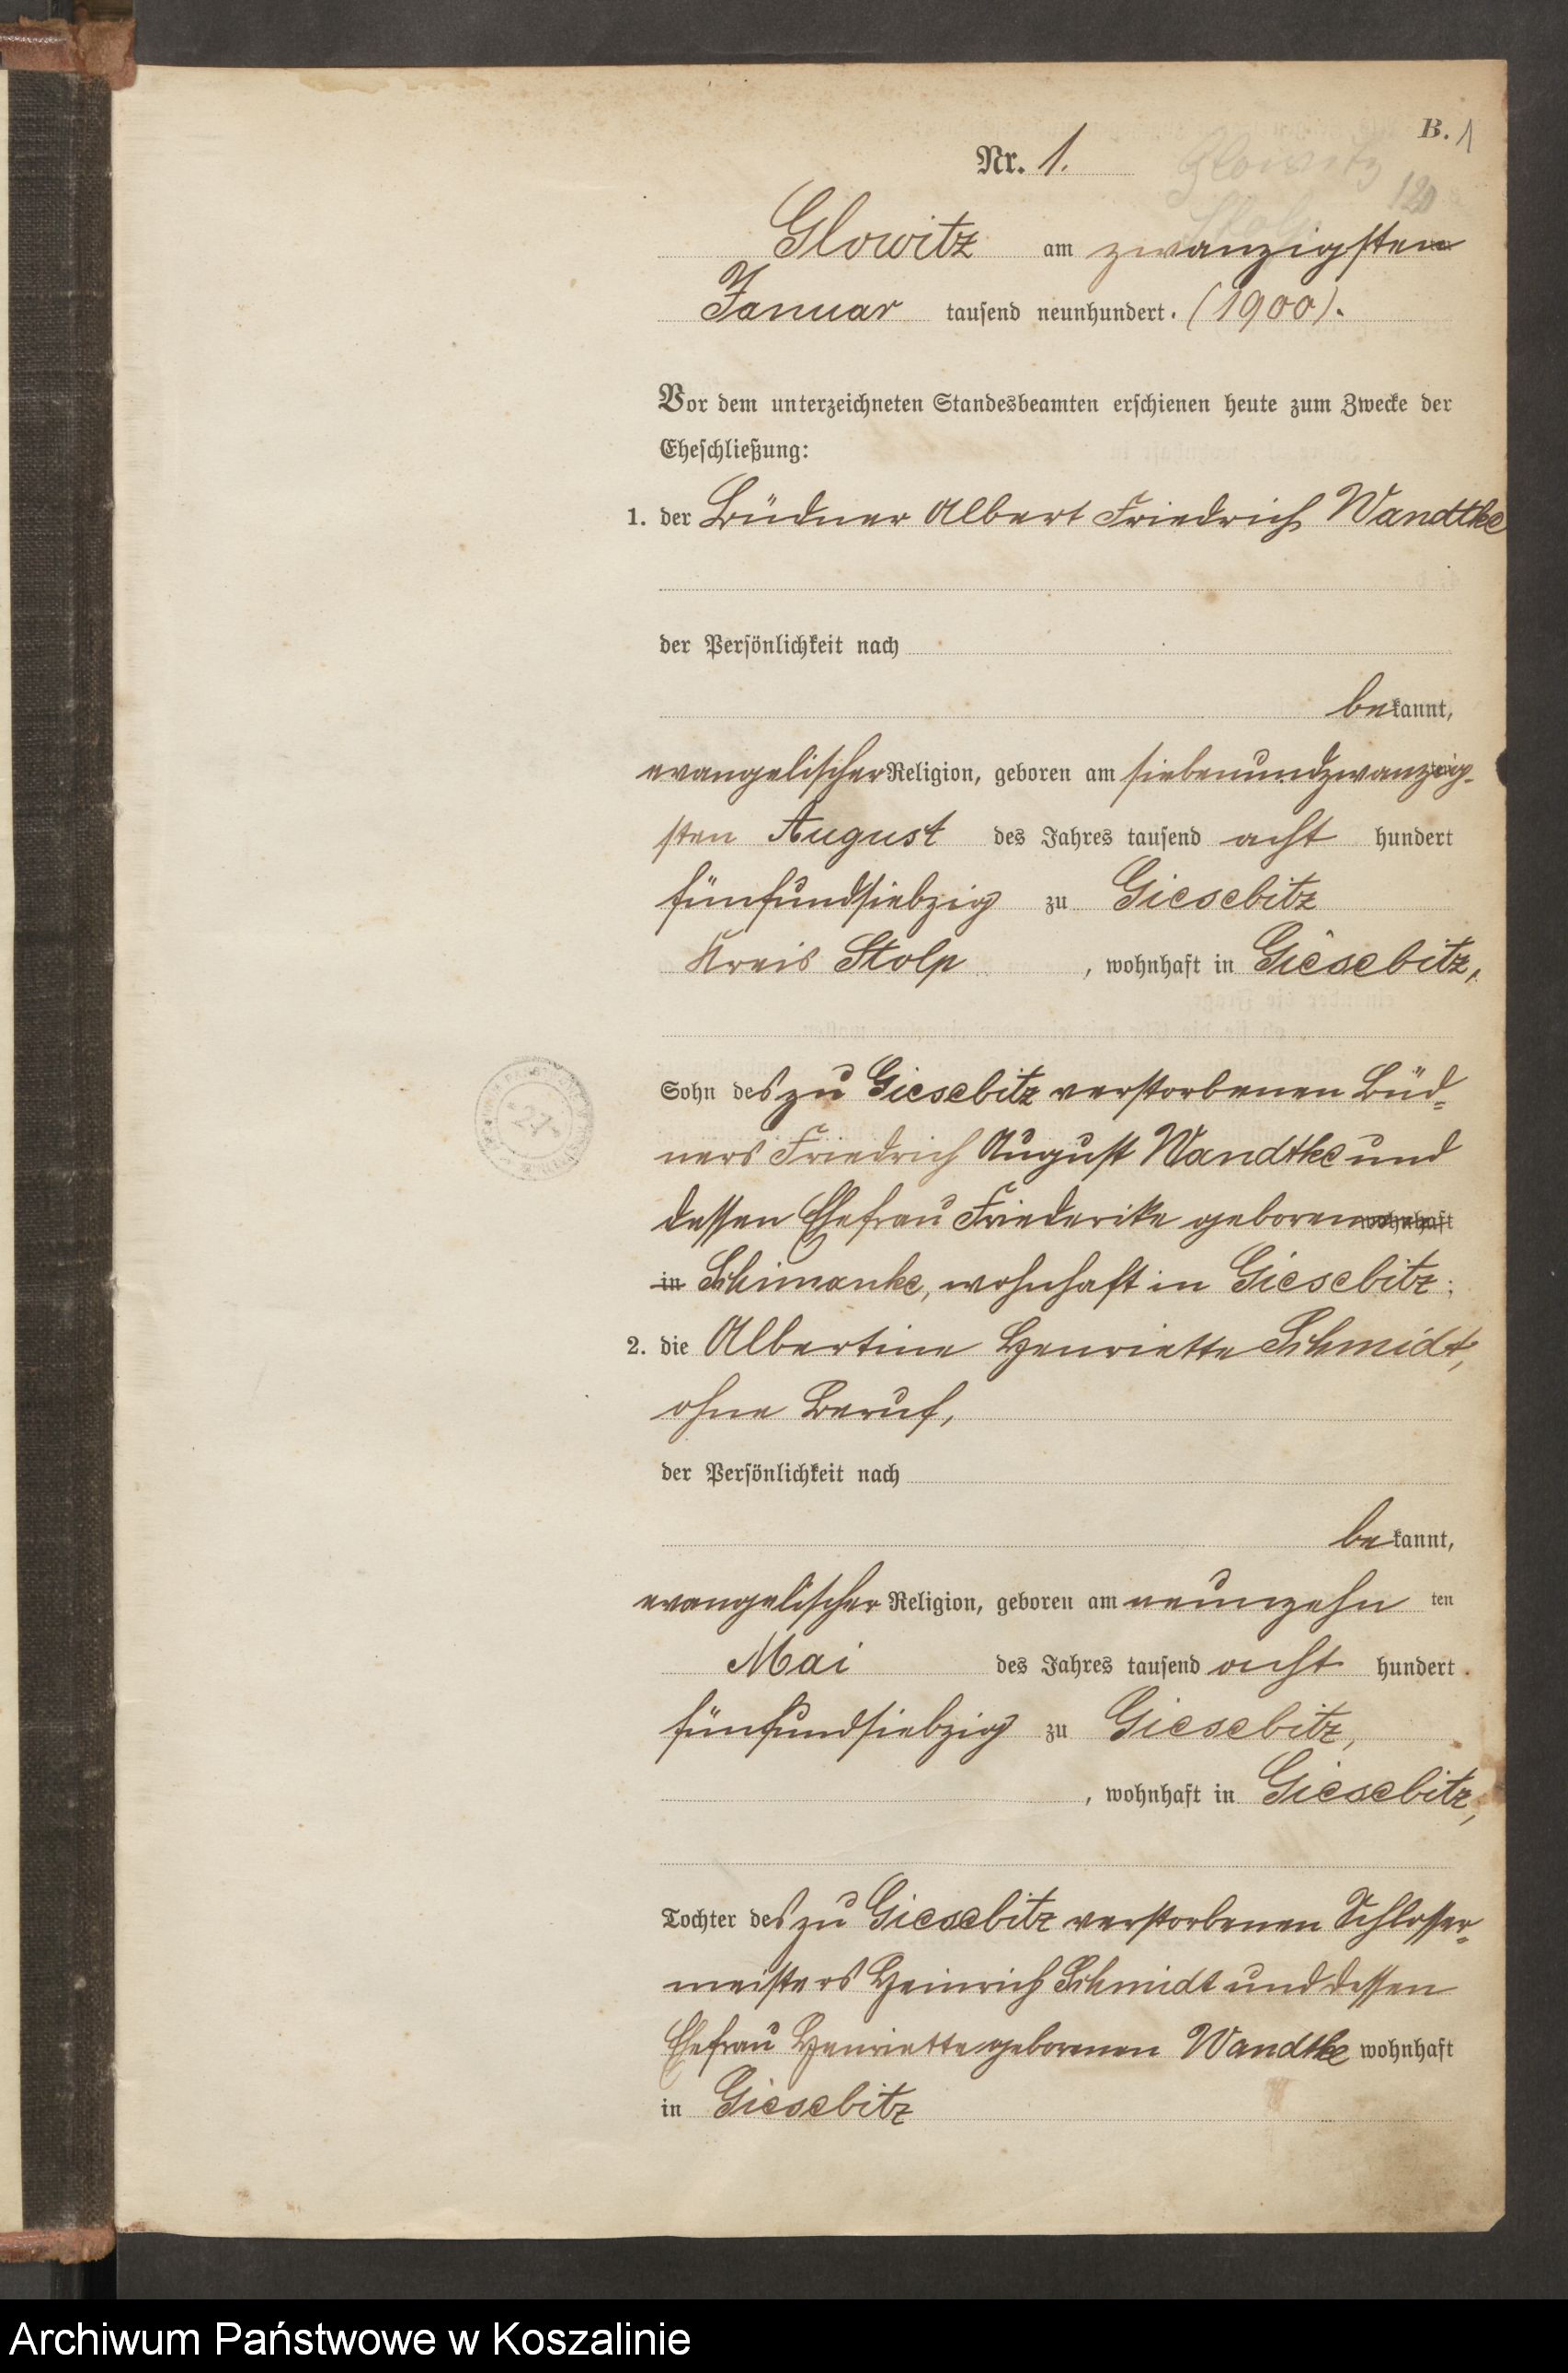 B. 1
Nr. 1.
Glowitz
120
Stolp
Glowitz am zwanzigsten
Januar tausend neunhundert. (1900).
Vor dem unterzeichneten Standesbeamten erschienen heute zum Zwecke der
Eheschließung:
1. der Büdner Albert Friedrich Wandtke
der Persönlichkeit nach
bekannt,
evangelischer Religion, geboren am siebenundzwanzig-
sten August des Jahres tausend acht hundert
fünfundsiebzig zu Giesebitz
Kreis Stolp, wohnhaft in Giesebitz,
Sohn des zu Giesebitz verstorbenen Büd-
ners Friedrich August Wandtke und
dessen Ehefrau Friederike geborenen wohnhaft
in Schimanke, wohnhaft in Giesebitz;
2. die Albertine Henriette Schmidt,
ohne Beruf,
der Persönlichkeit nach
bekannt,
evangelischer Religion, geboren am neunzehn ten
Mai des Jahres tausend acht hundert
fünfundsiebzig zu Giesebitz,
, wohnhaft in Giesebitz,
Tochter des zu Giesebitz verstorbenen Schlosser-
meisters Heinrich Schmidt und dessen
Ehefrau Henriette geborenen Wandtke wohnhaft
in Giesebitz
Archiwum Państwowe w Koszalinie